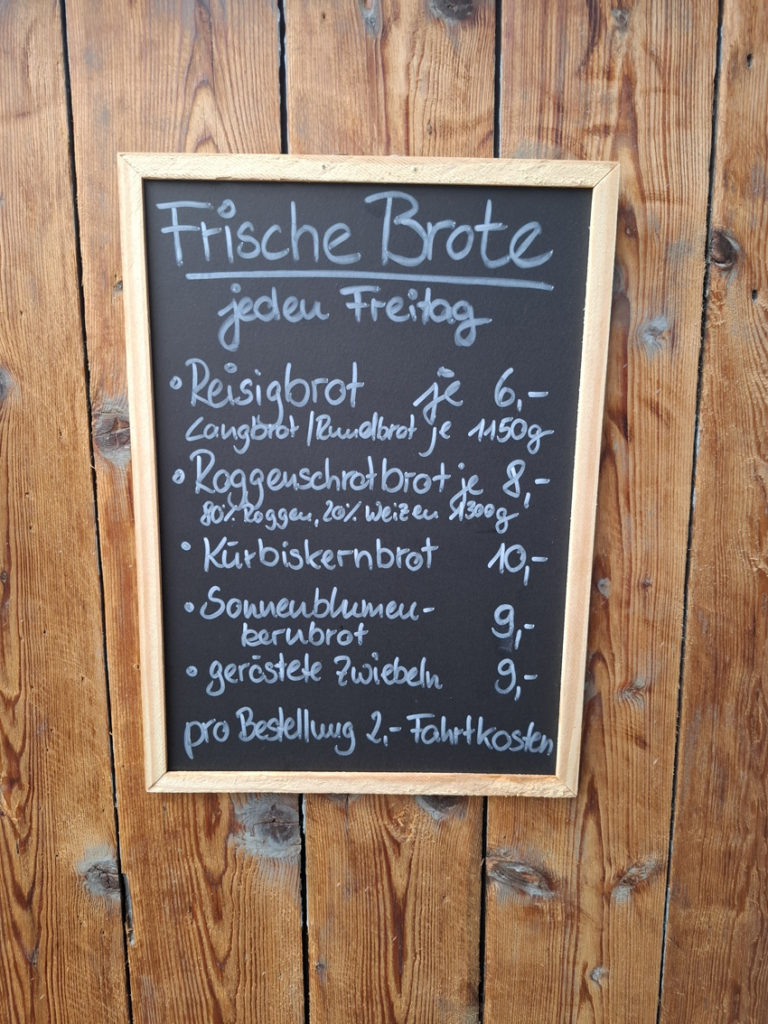 Frische Brote
jeden Freitag
• Reisigbrot je 6,-
Langbrot/Rundbrot je 1150g
• Roggenschrotbrot je 8,-
80% Roggen, 20% Weizen 1300g
• Kürbiskernbrot 10,-
• Sonnenblumen-
kernbrot 9,-
• geröstete Zwiebeln 9,-
pro Bestellung 2,- Fahrtkosten